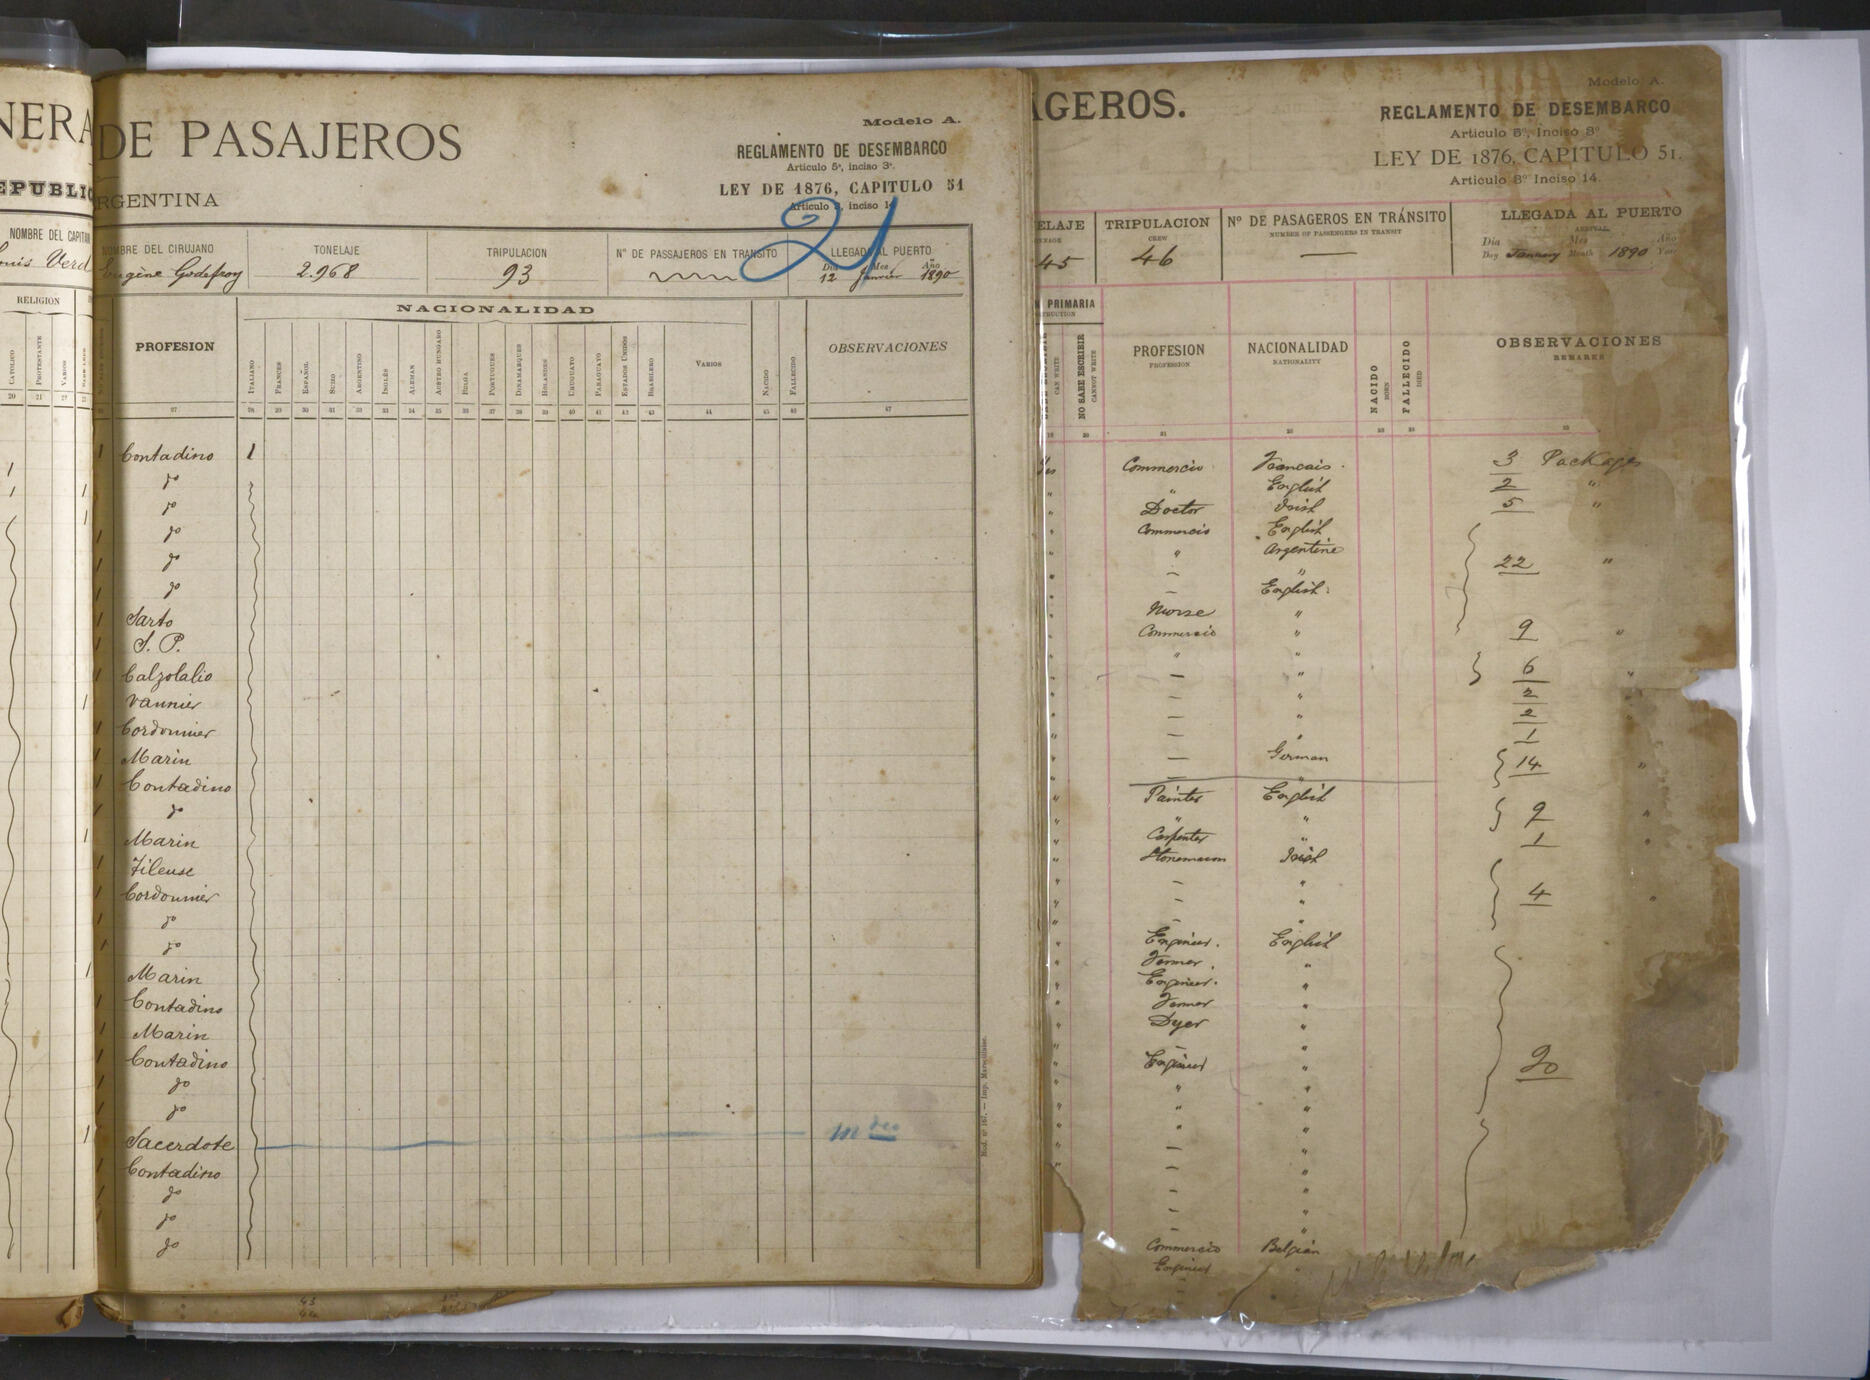 NERA
EPUBLIC
NOMBRE DEL CAPITAN
RELIGION
CATOLICO
PROTESTANTE
VARIOS
20 21 22
DE PASAJEROS
RGENTINA
Modelo A.
REGLAMENTO DE DESEMBARCO
Artículo 5º, inciso 3º.
LEY DE 1876, CAPITULO 51
21
NOMBRE DEL CIRUJANO TONELAJE TRIPULACION Nº DE PASAJEROS EN TRANSITO LLEGADA AL PUERTO
Dia Mes Año
Eugène Godefroy 2.968 93 12 Janvier 1890
NACIONALIDAD
PROFESION
ITALIANO
FRANCES
ESPAÑOL
SUIZO
ARGENTINO
INGLÉS
ALEMAN
AUSTRO HUNGARO
BELGA
PORTUGUES
DINAMARQUES
HOLANDES
URUGUAYO
PARAGUAYO
ESTADOS UNIDOS
BRASILERO
VARIOS
NACIDO
FALLECIDO
OBSERVACIONES
27 28 29 30 31 32 33 34 35 36 37 38 39 40 41 42 43 44 45 46 47
Contadino 1
do
do
do
do
do
Sarto
S. P.
Calzolalio
Vannier
Cordonnier
Marin
Contadino
do
Marin
Fileuse
Cordonnier
do
do
Marin
Contadino
Marin
Contadino
do
do
Sacerdote
Contadino
do
do
do
AGEROS.
Modelo A.
REGLAMENTO DE DESEMBARCO
Artículo 5º, Inciso 3º
LEY DE 1876, CAPITULO 51.
Artículo 8º Inciso 14.
ELAJE TRIPULACION Nº DE PASAGEROS EN TRÁNSITO LLEGADA AL PUERTO
NNAGE CREW NUMBER OF PASSENGERS IN TRANSIT ARRIVAL
Dia Mes Año
Day January Month 1890 Year
45 46 —
N PRIMARIA
TRUCTION
CAN WRITE
NO SABE ESCRIBIR
CANNOT WRITE
PROFESION
PROFESSION
NACIONALIDAD
NATIONALITY
NACIDO
BORN
FALLECIDO
DIED
OBSERVACIONES
REMARKS
Commercio Francais. 3 Packages
" English 2 "
Doctor Irish 5 "
Commercio English
" Argentine
— " 22 "
— English.
Nurse "
Commercio " 9 "
" "
— " 6 "
— " 2 "
— " 2 "
— " 1
— German 14 "
— "
Painter English
" " 9 "
Carpenter " 1 "
Stonemason Irish
— " 4 "
— "
— "
Engineer. English
Farmer. "
Engineer. "
Farmer "
Dyer "
— "
Engineer " 20
" "
" "
" "
— "
— "
— "
— "
— "
Commercio Belgian
Engineer "